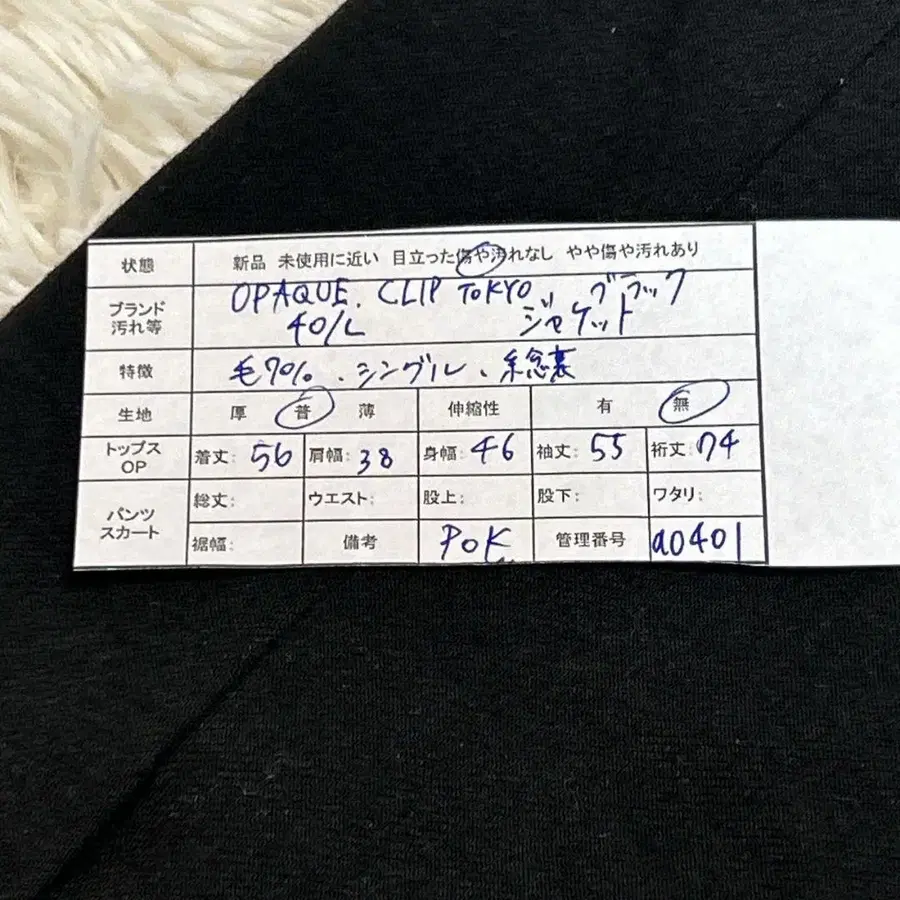 状態 新品 未使用に近い 目立った傷や汚れなし やや傷や汚れあり
ブランド 汚れ等 OPAQUE. CLIP TOKYO ブラック
40/L ジャケット
特徴 毛70%、シングル、総裏
生地 厚 普 薄 伸縮性 有 無
トップス OP 着丈: 56 肩幅: 38 身幅: 46 袖丈: 55 裄丈: 74
パンツ スカート 総丈: ウエスト: 股上: 股下: ワタリ:
裾幅: 備考 POK 管理番号 a0401